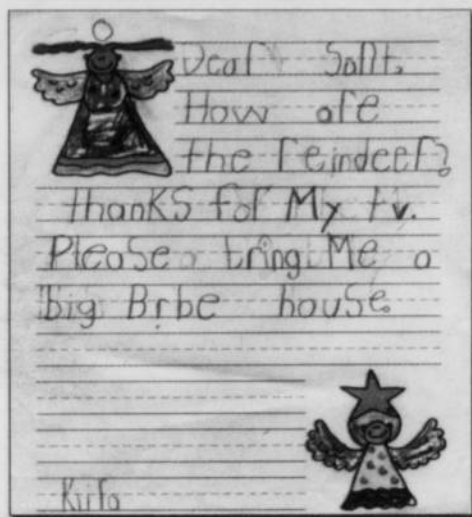 Dear Sant.
How are
the reindeer?
thanks for My tv.
Please bring Me a
big Brbe house